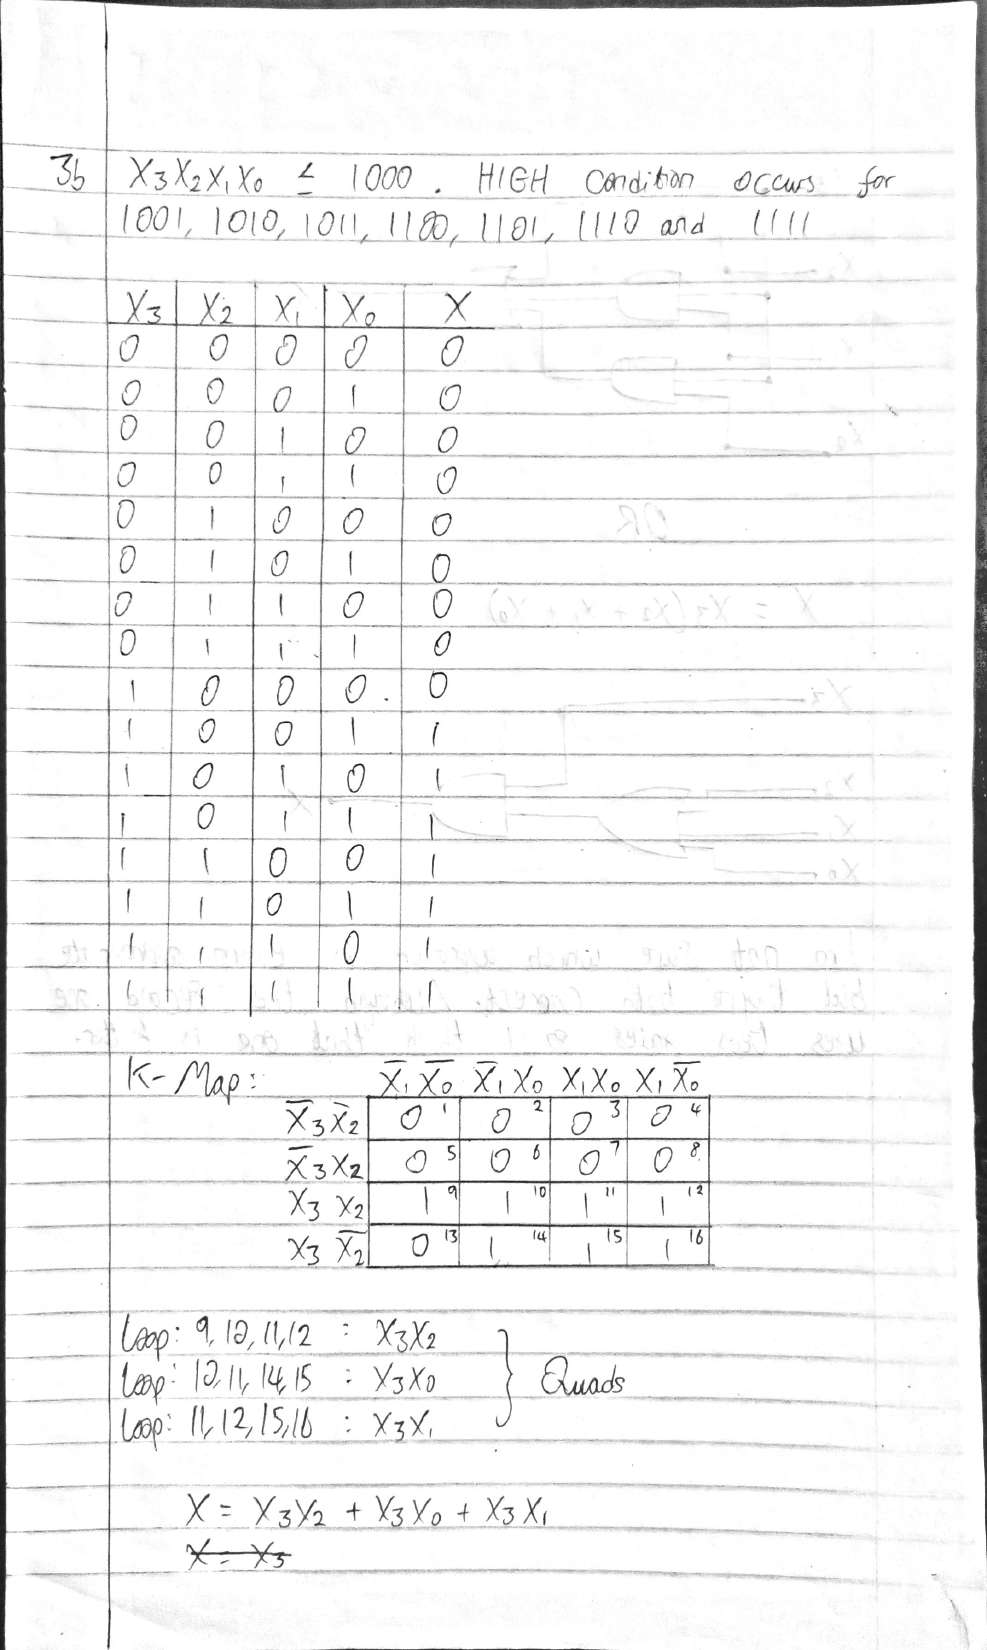 3b X₃X₂X₁X₀ ≤ 1000. HIGH condition occurs for
1001, 1010, 1011, 1100, 1101, 1110 and 1111
X₃ X₂ X₁ X₀ X
0 0 0 0 0
0 0 0 1 0
0 0 1 0 0
0 0 1 1 0
0 1 0 0 0
0 1 0 1 0
0 1 1 0 0
0 1 1 1 0
1 0 0 0 0
1 0 0 1 1
1 0 1 0 1
1 0 1 1 1
1 1 0 0 1
1 1 0 1 1
1 1 1 0 1
1 1 1 1 1
K-Map: X̅₁X̅₀ X̅₁X₀ X₁X₀ X₁X̅₀
X̅₃X̅₂ 0 1 0 2 0 3 0 4
X̅₃X₂ 0 5 0 6 0 7 0 8
X₃X₂ 1 9 1 10 1 11 1 12
X₃X̅₂ 0 13 1 14 1 15 1 16
Loop: 9, 10, 11, 12 : X₃X₂
Loop: 10, 11, 14, 15 : X₃X₀ } Quads
Loop: 11, 12, 15, 16 : X₃X₁
X = X₃X₂ + X₃X₀ + X₃X₁
X = X₃